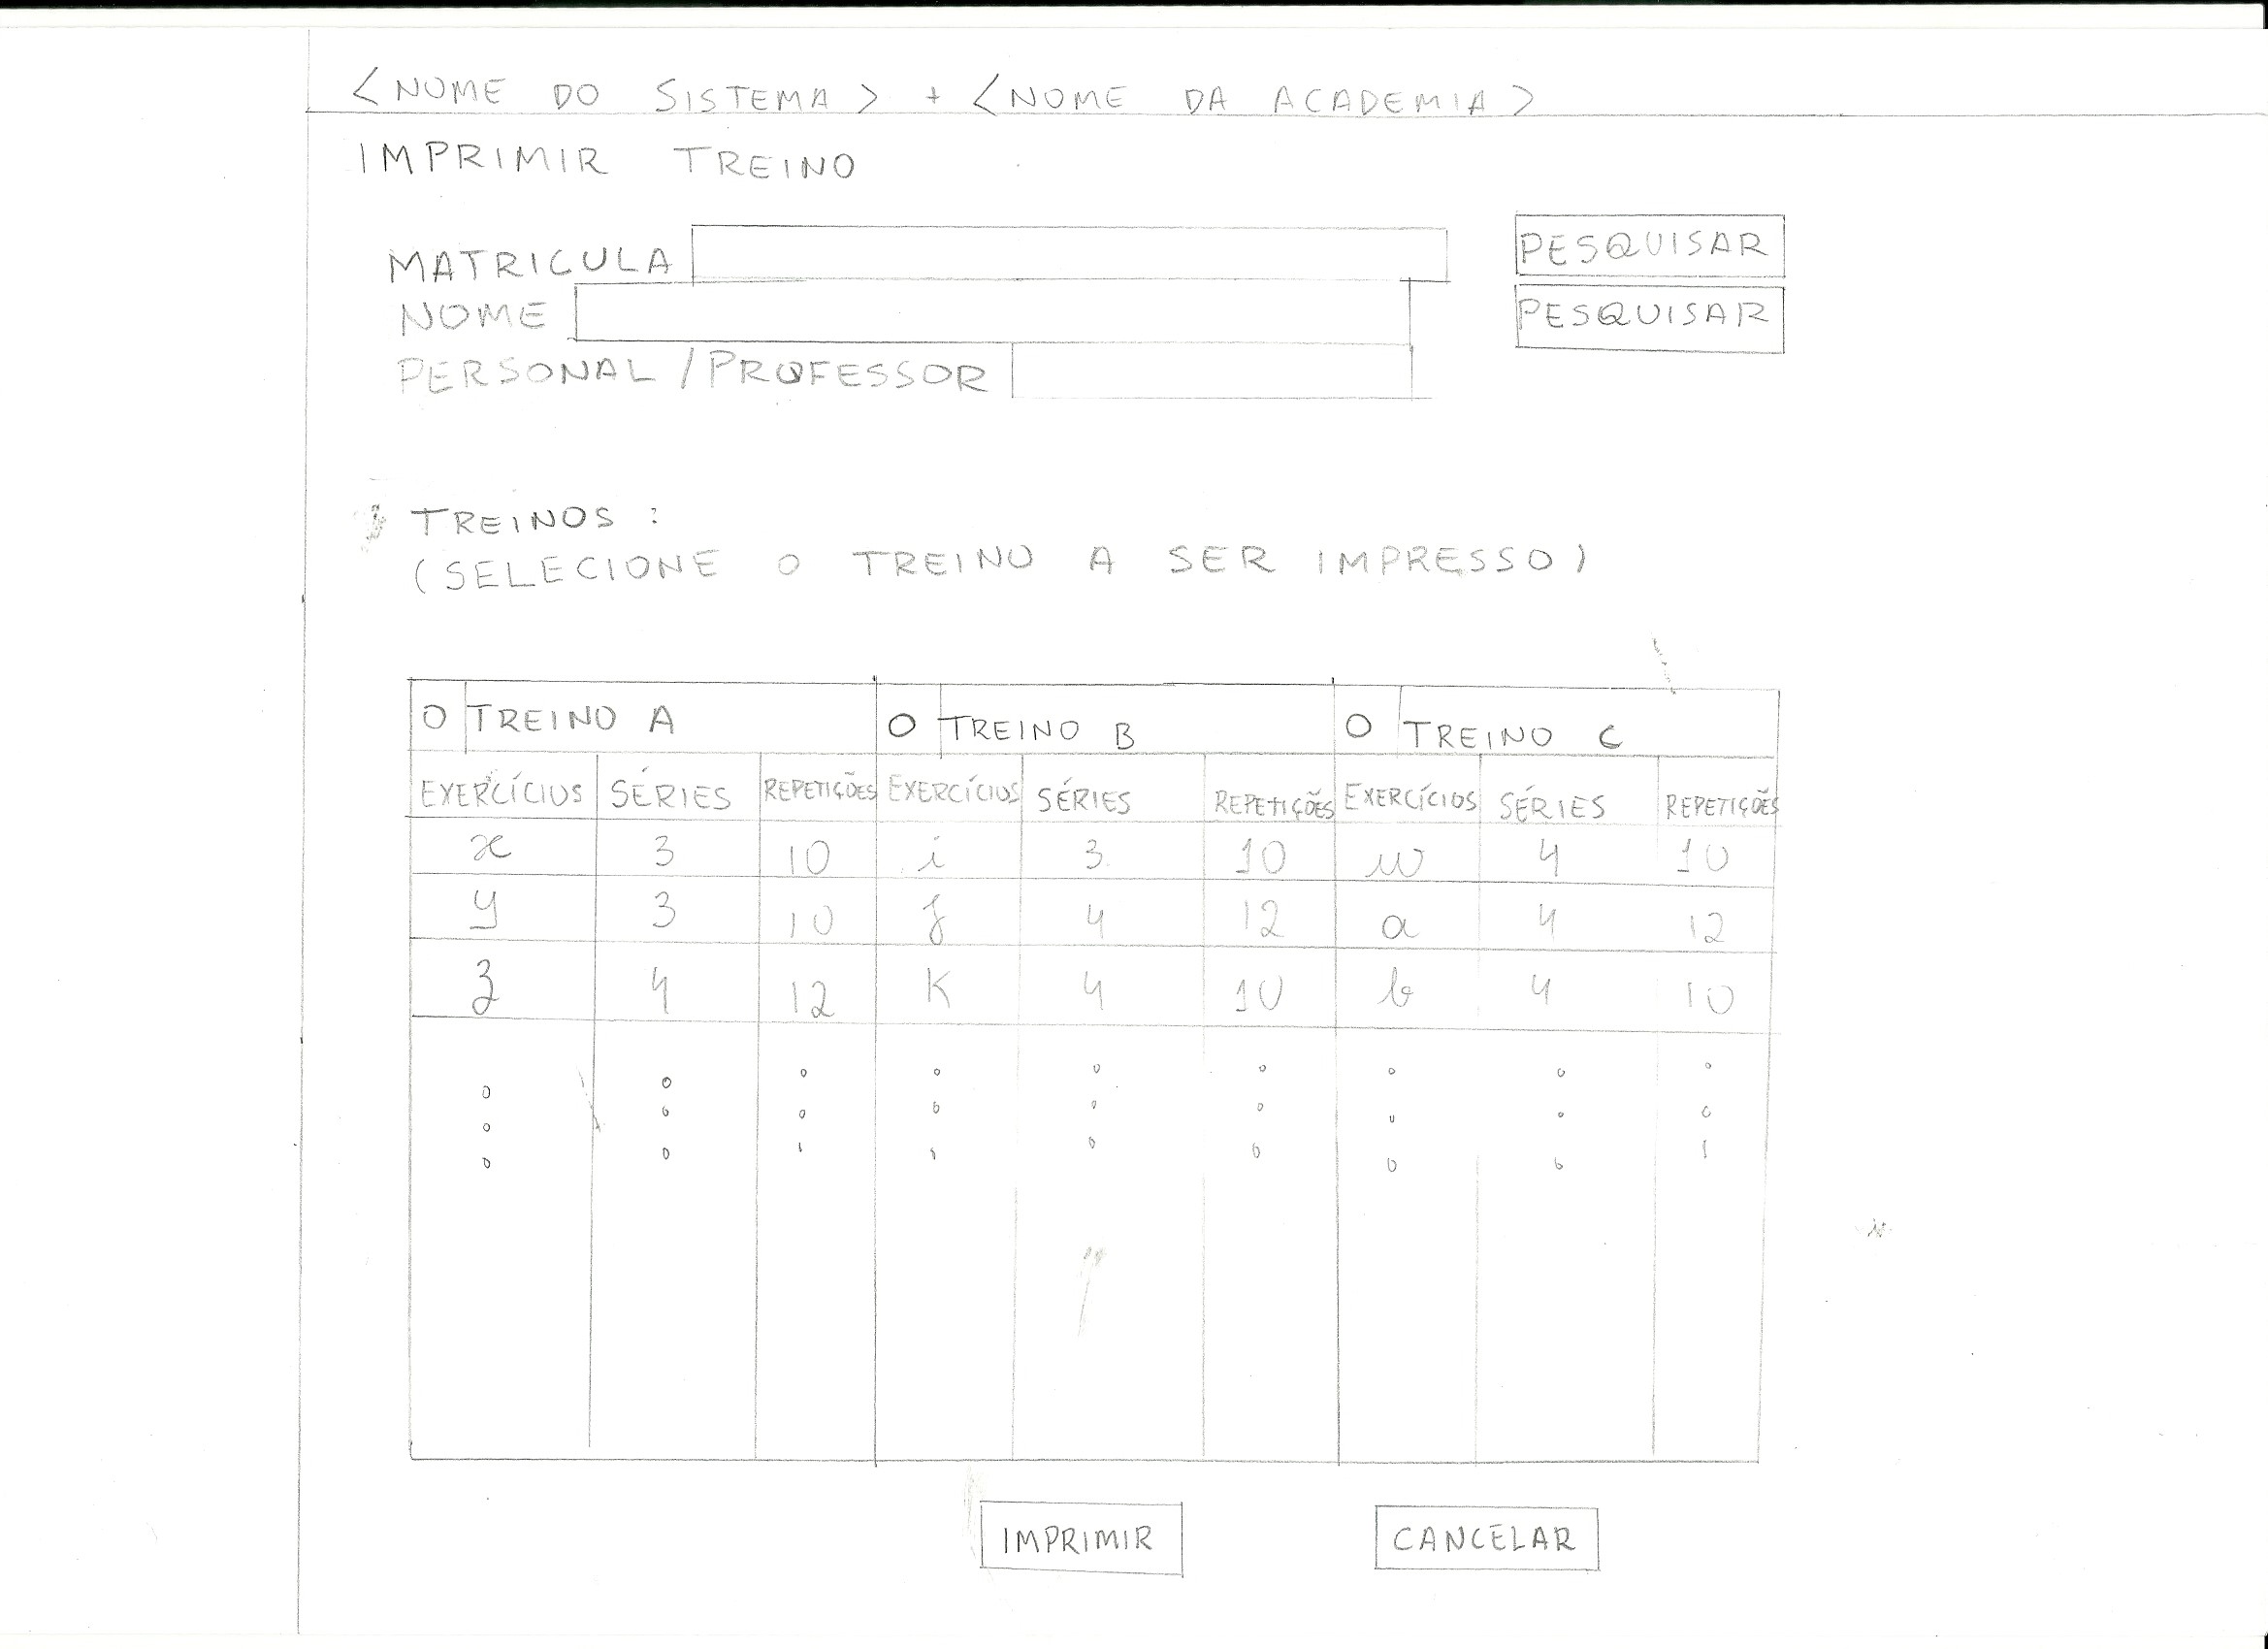 <NOME DO SISTEMA> + <NOME DA ACADEMIA>
IMPRIMIR TREINO
MATRICULA PESQUISAR
NOME PESQUISAR
PERSONAL / PROFESSOR
TREINOS :
(SELECIONE O TREINO A SER IMPRESSO)
O TREINO A O TREINO B O TREINO C
EXERCÍCIOS SÉRIES REPETIÇÕES EXERCÍCIOS SÉRIES REPETIÇÕES EXERCÍCIOS SÉRIES REPETIÇÕES
x 3 10 i 3 10 w 4 10
y 3 10 j 4 12 a 4 12
z 4 12 K 4 10 b 4 10
IMPRIMIR CANCELAR